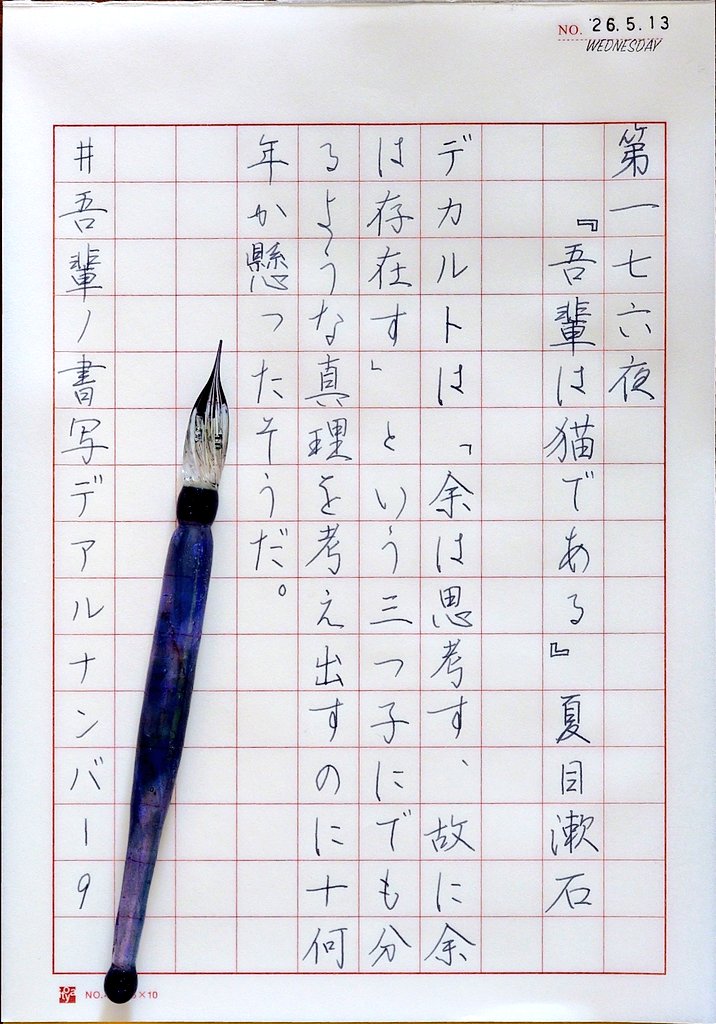 NO. '26.5.13
WEDNESDAY
第一七六夜
『吾輩は猫である』夏目漱石
デカルトは「余は思考す、故に余
は存在す」という三つ子にでも分
るような真理を考え出すのに十何
年か懸ったそうだ。
#吾輩ノ書写デアルナンバー9
NO.
×10